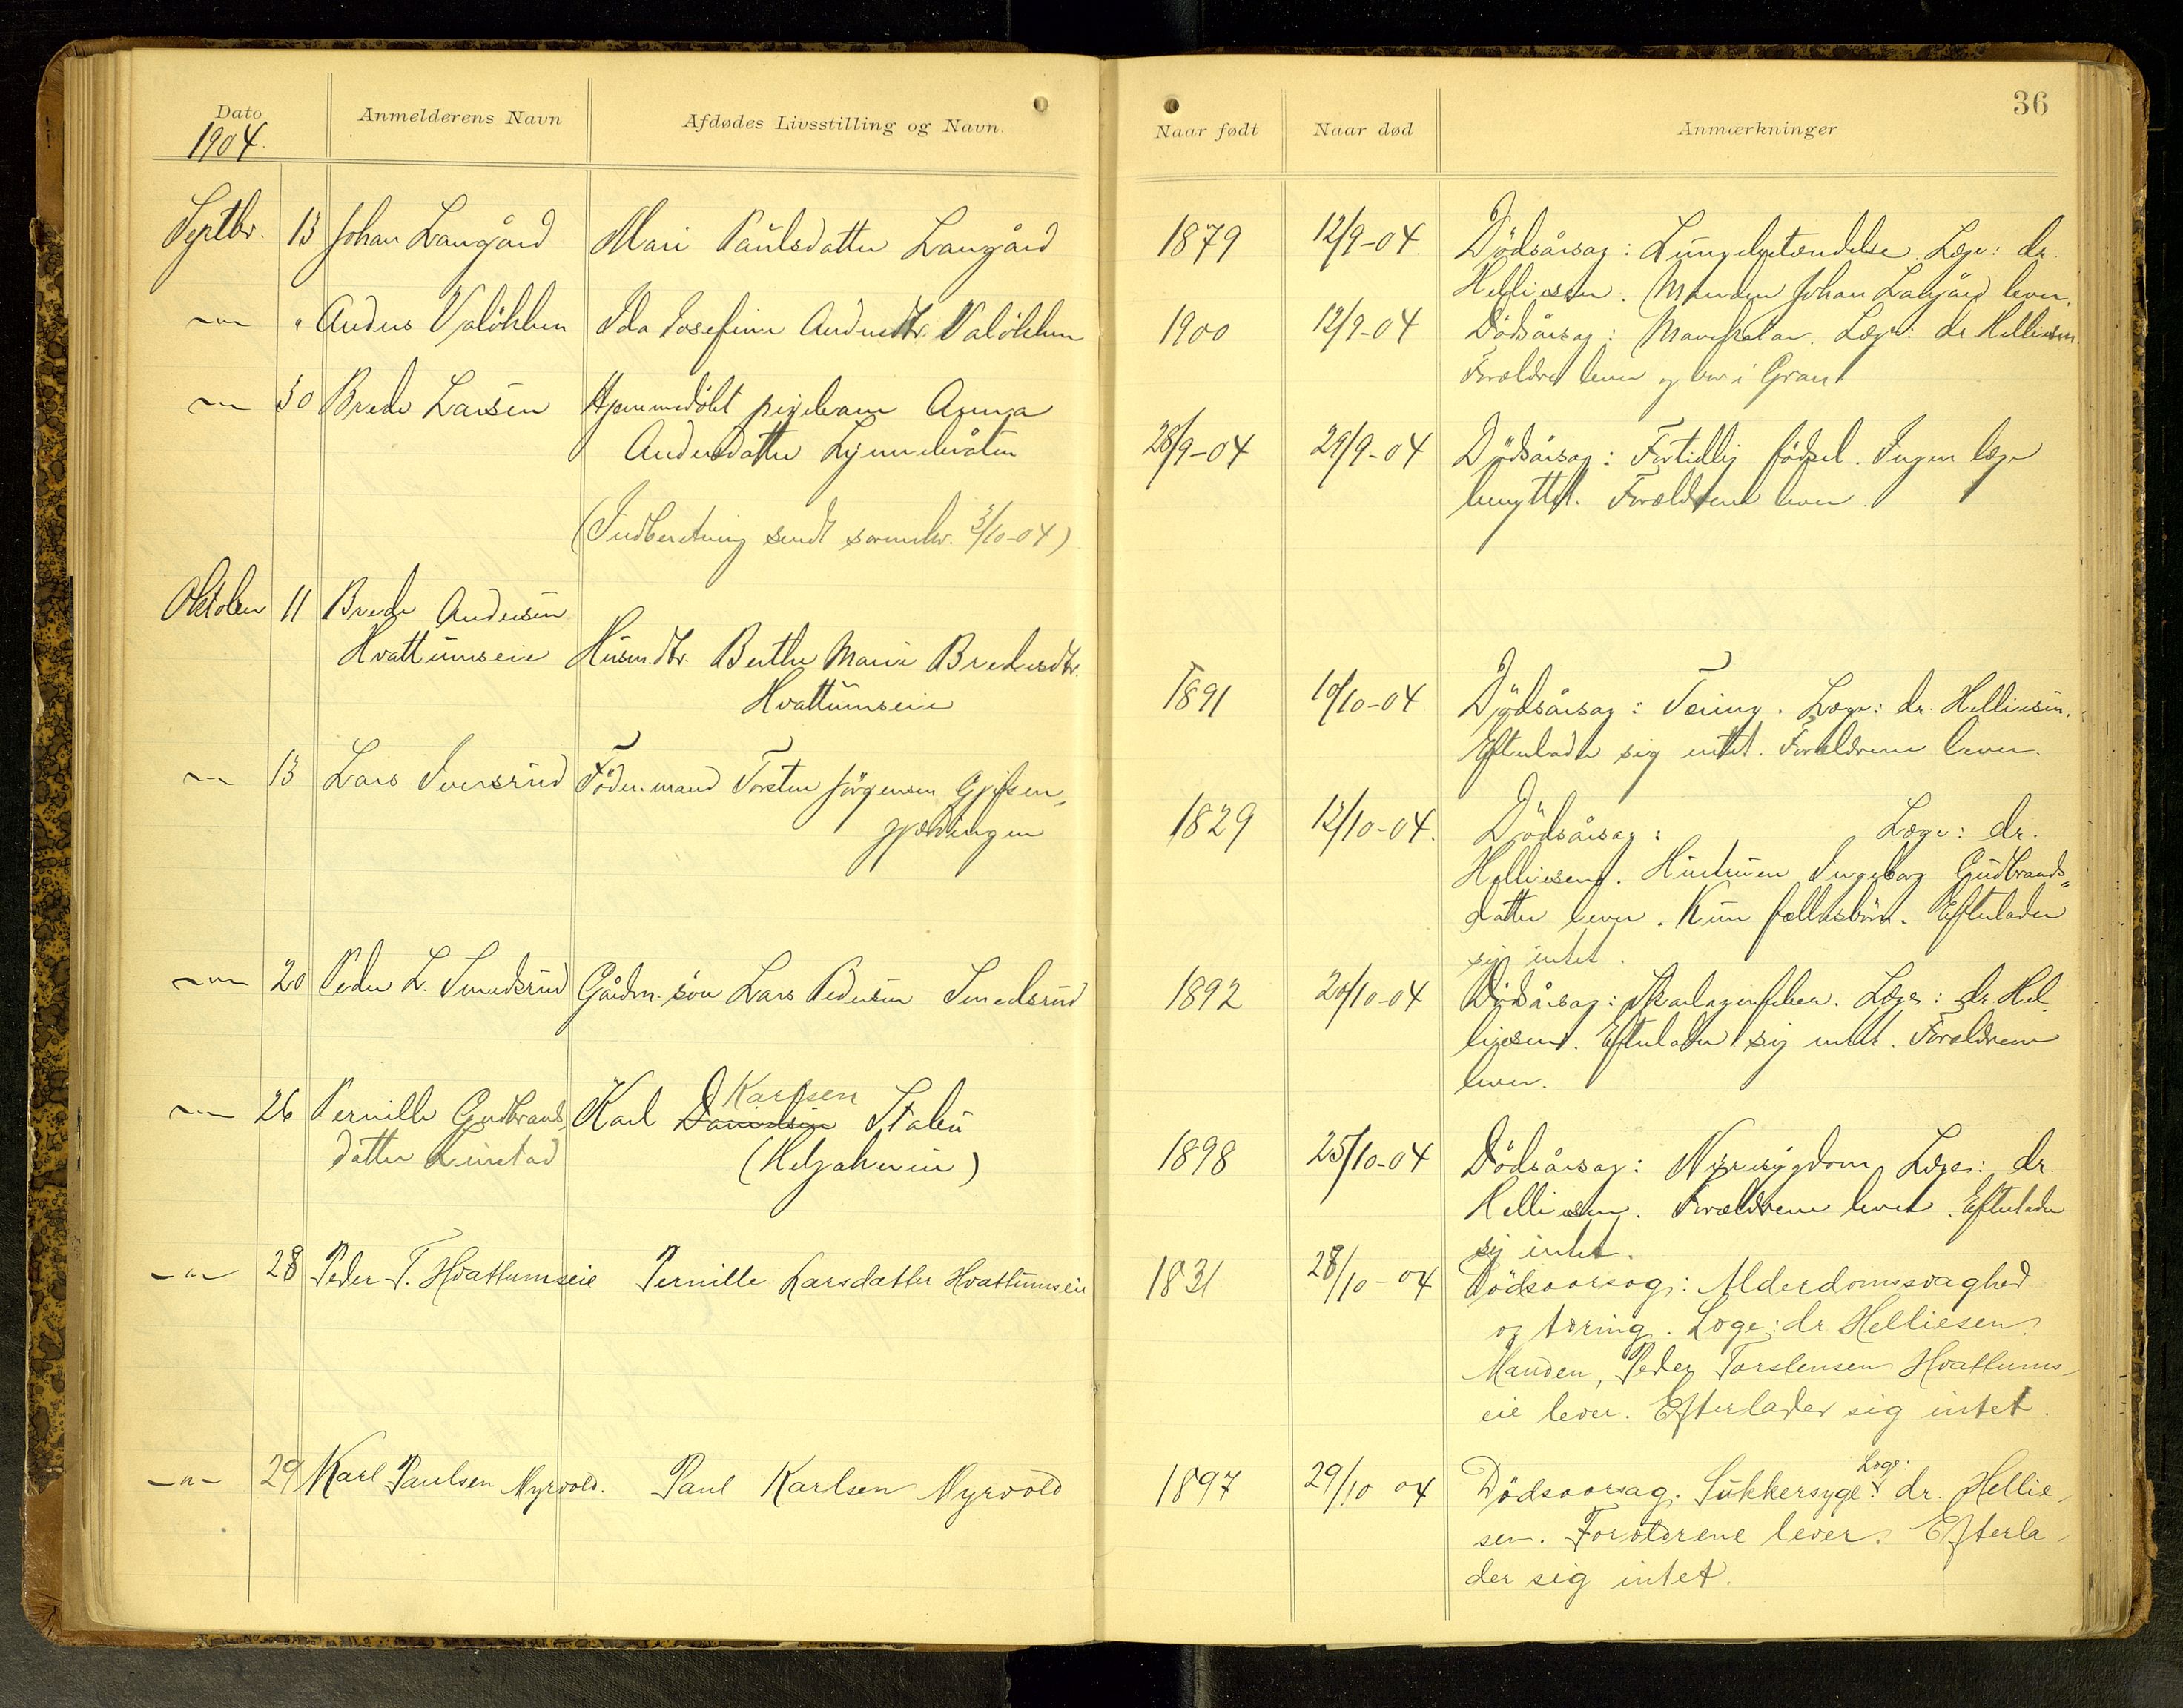 Dato
1904.
Anmelderens Navn
Afdødes Livsstilling og Navn.
Naar født
Naar død
Anmærkninger
36
Septbr. 13 Johan Langård Mari Paulsdatter Langård 1879 12/9-04. Dödsårsag: Lungebetændelse. Læge: dr.
Helliesen. Manden Johan Langård lever.
—"— " Anders Valökken Ida Josefine Andersdtr. Valökken 1900 12/9-04 Dödsårsag: Mavekatar. Læge: dr. Helliesen.
Forældre lever og bor i Gran
—"— 30 Brede Larsen Hjemmedöbt pigebarn Anna
Andersdatter Lynnebråten 28/9-04 29/9-04 Dödsårsag: Fortidlig födsel. Ingen læge
benyttet. Forældrene lever.
(Indberetning sendt sorenskr. 3/10-04)
Oktober 11 Brede Andersen
Hvattumseie Husm.dtr. Berthe Marie Bredesdtr.
Hvattumseie 1891 10/10-04 Dödsårsag: Tæring. Læge: dr. Helliesen.
Efterlader sig intet. Forældrene lever.
—"— 13 Lars Iversrud Föder.mand Torsten Jörgensen Gjefsen-
gjærdingen 1829 12/10-04. Dödsårsag: Læge: dr.
Helliesen. Hustruen Ingeborg Gudbrands=
datter lever. Kun fællesbörn. Efterlader
sig intet.
—"— 20 Peder L. Smedsrud Gårdm. sön Lars Pedersen Smedsrud 1892 20/10-04 Dödsårsag: Skarlagensfeber. Læge: dr. Hel-
liesen. Efterlader sig intet. Forældrene
lever.
—"— 26 Pernille Gudbrands-
datter Linstad Karl Danielsen Karlsen Stabu
(Helgakereie) 1898 25/10-04 Dödsårsag: Nyresygdom. Læge: dr.
Helliesen. Forældrene lever. Efterlader
sig intet.
—"— 28 Peder T. Hvattumseie Pernille Larsdatter Hvattumseie 1831 28/10-04 Dödsaarsag: Alderdomssvaghed
og tæring. Læge: dr. Helliesen.
Manden, Peder Torstensen Hvattums-
eie lever. Efterlader sig intet.
—"— 29 Karl Paulsen Nyrvold. Paul Karlsen Nyrvold 1897 29/10 04 Dödsaarsag. Sukkersyge. Læge: dr. Hellie-
sen. Forældrene lever. Efterla-
der sig intet.